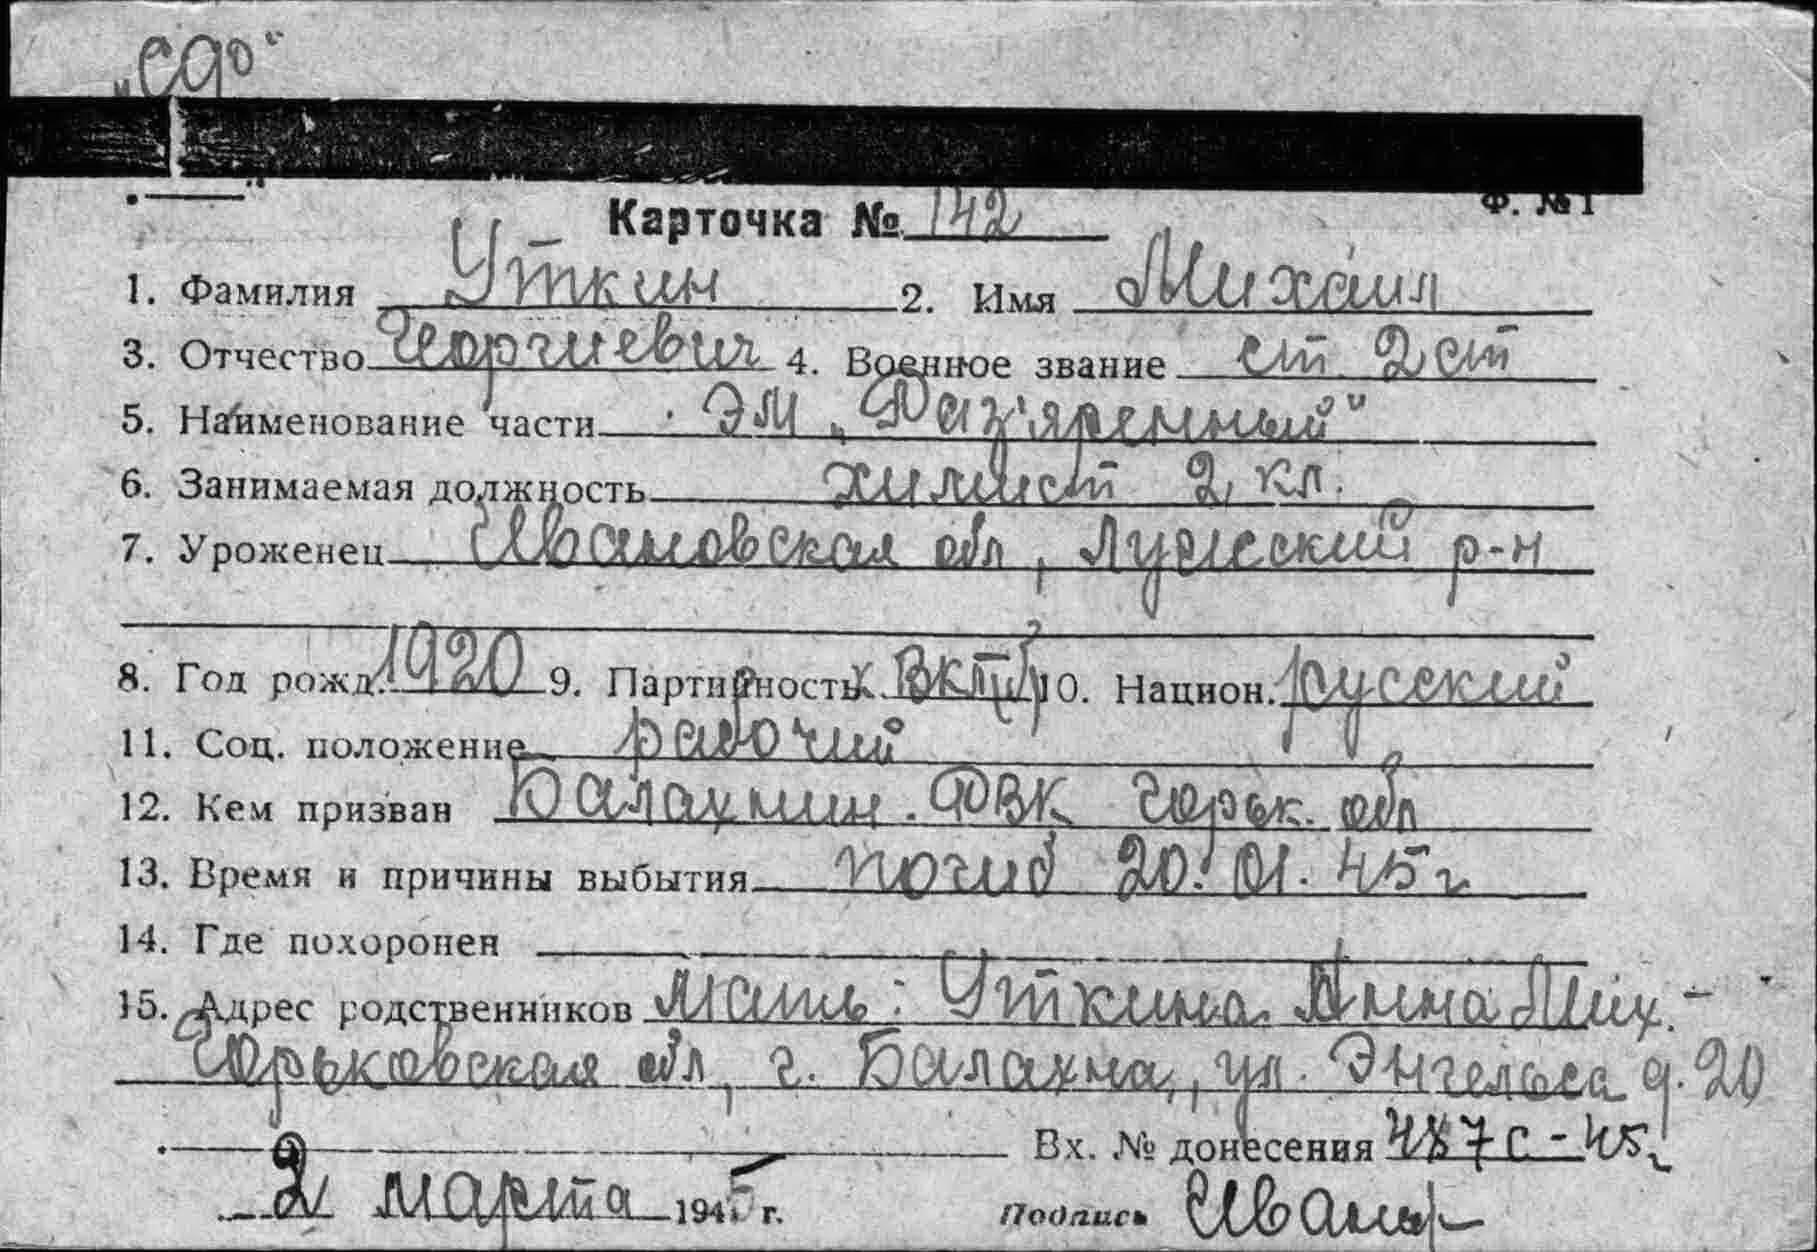 „СФ“
Ф. №1
Карточка № 142
1. Фамилия Уткин 2. Имя Михаил
3. Отчество Георгиевич 4. Военное звание ст 2 ст
5. Наименование части ЭМ „Раз'яренный“
6. Занимаемая должность химист 2 кл.
7. Уроженец Ивановская обл, Лухский р-н
8. Год рожд. 1920 9. Партийность к. ВКП(б) 10. Национ. русский
11. Соц. положение рабочий
12. Кем призван Балахнин. РВК Горьк. обл
13. Время и причины выбытия погиб 20.01.45 г
14. Где похоронен
15. Адрес родственников мать: Уткина Анна Мих. -
Горьковская обл, г. Балахна, ул. Энгельса д. 20
Вх. № донесения 487с-45г
2 марта 1945 г. Подпись